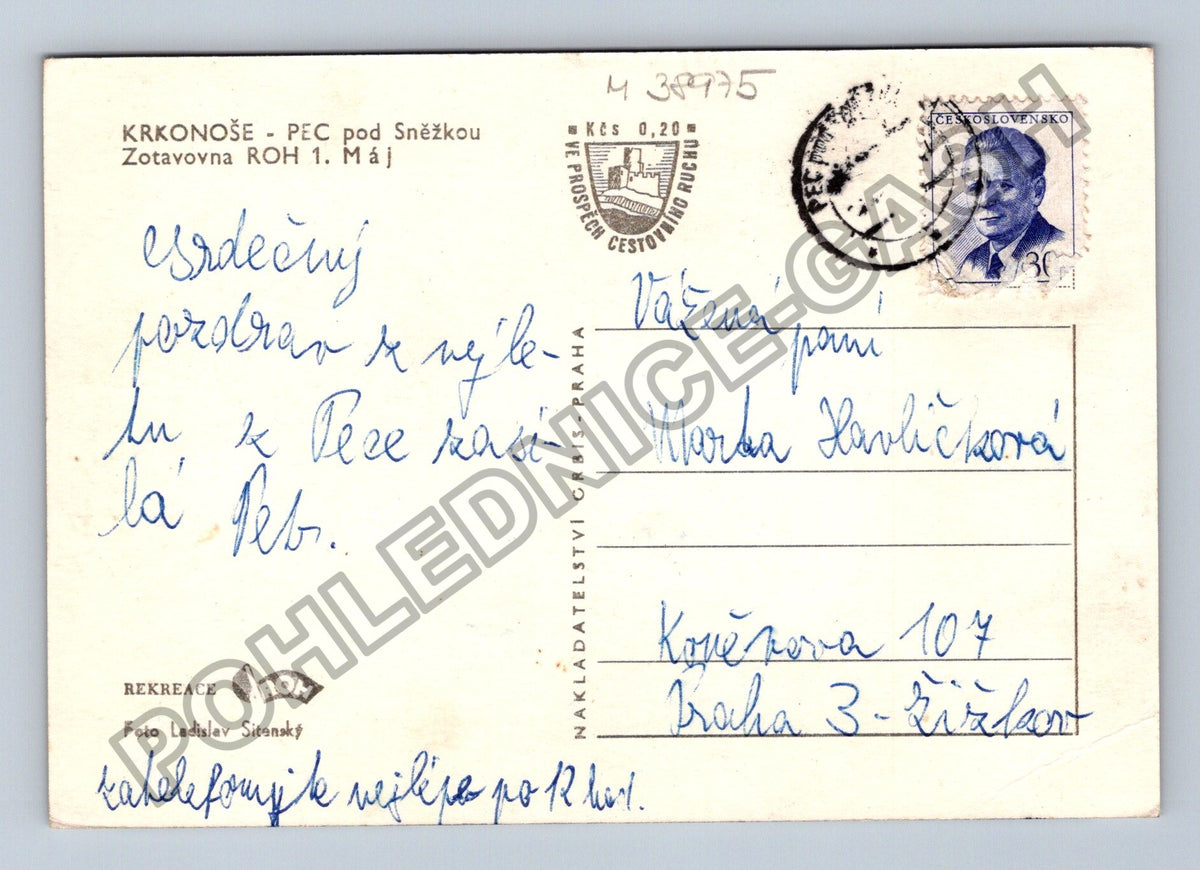 M 38975
KRKONOŠE - PEC pod Sněžkou
Zotavovna ROH 1. Máj
Kčs 0,20
VE PROSPĚCH CESTOVNÍHO RUCHU
PEC pod SNĚŽKOU
ČESKOSLOVENSKO
30
Srdečný
pozdrav z výle-
tu z Pece zasí-
lá Petr.
Vážená
paní
Marta Havlíčková
Koněvova 107
Praha 3 - Žižkov
NAKLADATELSTVÍ ORBIS - PRAHA
REKREACE ROH
Foto Ladislav Sitenský
zatelefonujte nejlépe po 12 hod.
POHLEDNICE-GASH